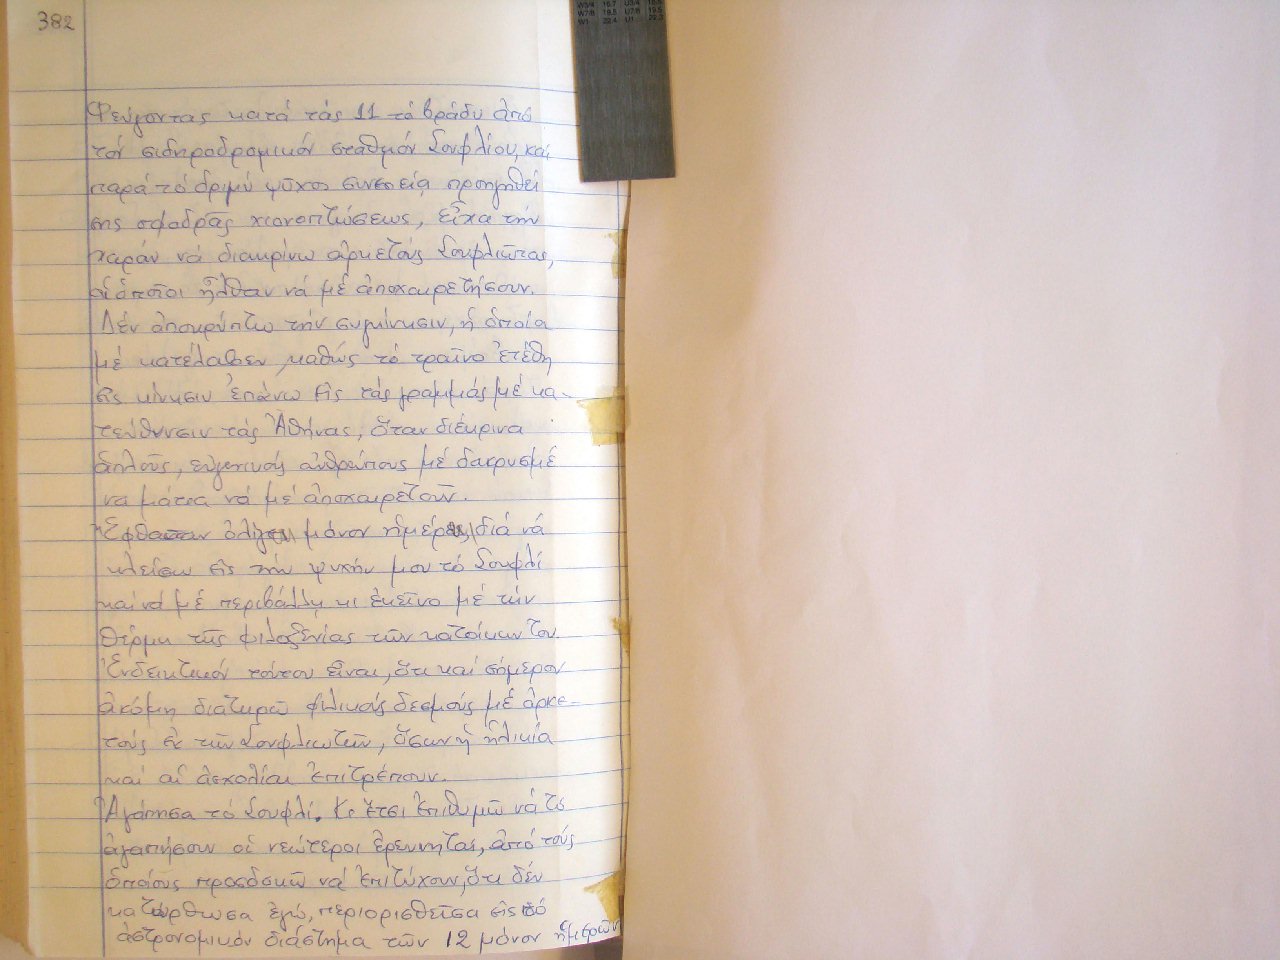 382
W3/4 16.7 U3/4 16.5
W7/8 19.5 U7/8 19.5
W1 22.4 U1 22.3
Φεύγοντας κατά τάς 11 τό βράδυ ἀπό
τόν σιδηροδρομικόν σταθμόν Σουφλίου, καί
παρά τό δριμύ ψῦχος συνεπείᾳ προηγηθεί
σης σφοδρᾶς χιονοπτώσεως, εἶχα τήν
χαράν νά διακρίνω ἀρκετούς Σουφλιῶτας,
οἱ ὁποῖοι ἦλθαν νά μέ ἀποχαιρετήσουν.
Δέν ἀποκρύπτω τήν συγκίνησιν, ἡ ὁποία
μέ κατέλαβεν, καθώς τό τραῖνο ἐτέθη
εἰς κίνησιν ἐπάνω εἰς τάς γραμμάς μέ κα-
τεύθυνσιν τάς Ἀθήνας, ὅταν διέκρινα
ἁπλούς, εὐγενικούς ἀνθρώπους μέ δακρυσμέ
να μάτια νά μέ ἀποχαιρετοῦν.
Ἔφθασαν μόνον διά νά
κλείσω εἰς τήν ψυχήν μου τό Σουφλί
καί νά μέ περιβάλλῃ κι ἐκεῖνο μέ τήν
θέρμη τῆς φιλοξενίας τῶν κατοίκων του.
Ἐνδεικτικόν τούτου εἶναι, ὅτι καί σήμερον
ἀκόμη διατηρῶ φιλικούς δεσμούς μέ ἀρκε-
τούς ἐκ τῶν Σουφλιωτῶν, ὅσων ἡ ἡλικία
καί αἱ ἀσχολίαι ἐπιτρέπουν.
Ἀγάπησα τό Σουφλί. Κι ἔτσι ἐπιθυμῶ νά τό
ἀγαπήσουν οἱ νεώτεροι ἐρευνηταί, ἀπό τούς
ὁποίους προσδοκῶ νά ἐπιτύχουν, ὅτι δέν
κατώρθωσα ἐγώ, περιορισθεῖσα εἰς τό
ἀστρονομικόν διάστημα τῶν 12 μόνον ἡμερῶν